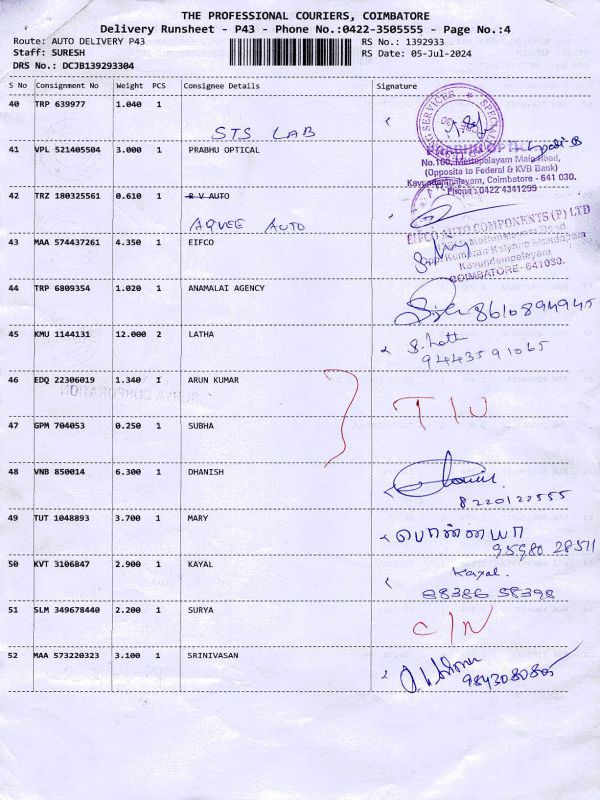 THE PROFESSIONAL COURIERS, COIMBATORE
Delivery Runsheet - P43 - Phone No.:0422-3505555 - Page No.:4
Route: AUTO DELIVERY P43 RS No.: 1392933
Staff: SURESH RS Date: 05-Jul-2024
DRS No.: DCJB139293304
S No Consignment No Weight PCS Consignee Details Signature
40 TRP 639977 1.040 1
STS LAB
41 VPL 521405504 3.000 1 PRABHU OPTICAL
PRABHU OPTICAL
No.160, Mettupalayam Main Road,
(Opposite to Federal & KVB Bank)
Kavundampalayam, Coimbatore - 641 030.
Phone : 0422 4341255
42 TRZ 180325561 0.610 1 R V AUTO
AQVEE AUTO
EIFCO AUTO COMPONENTS (P) LTD
43 MAA 574437261 4.350 1 EIFCO
Kavundampalayam
COIMBATORE - 641030.
44 TRP 6809354 1.020 1 ANAMALAI AGENCY
8610894945
45 KMU 1144131 12.000 2 LATHA
9443591065
46 EDQ 22306019 1.340 1 ARUN KUMAR
47 GPM 704053 0.250 1 SUBHA
48 VNB 850014 6.300 1 DHANISH
8220122555
49 TUT 1048893 3.700 1 MARY
95980 28511
50 KVT 3106847 2.900 1 KAYAL
Kayal.
88386 58398
51 SLM 349678440 2.200 1 SURYA
C/N
52 MAA 573220323 3.100 1 SRINIVASAN